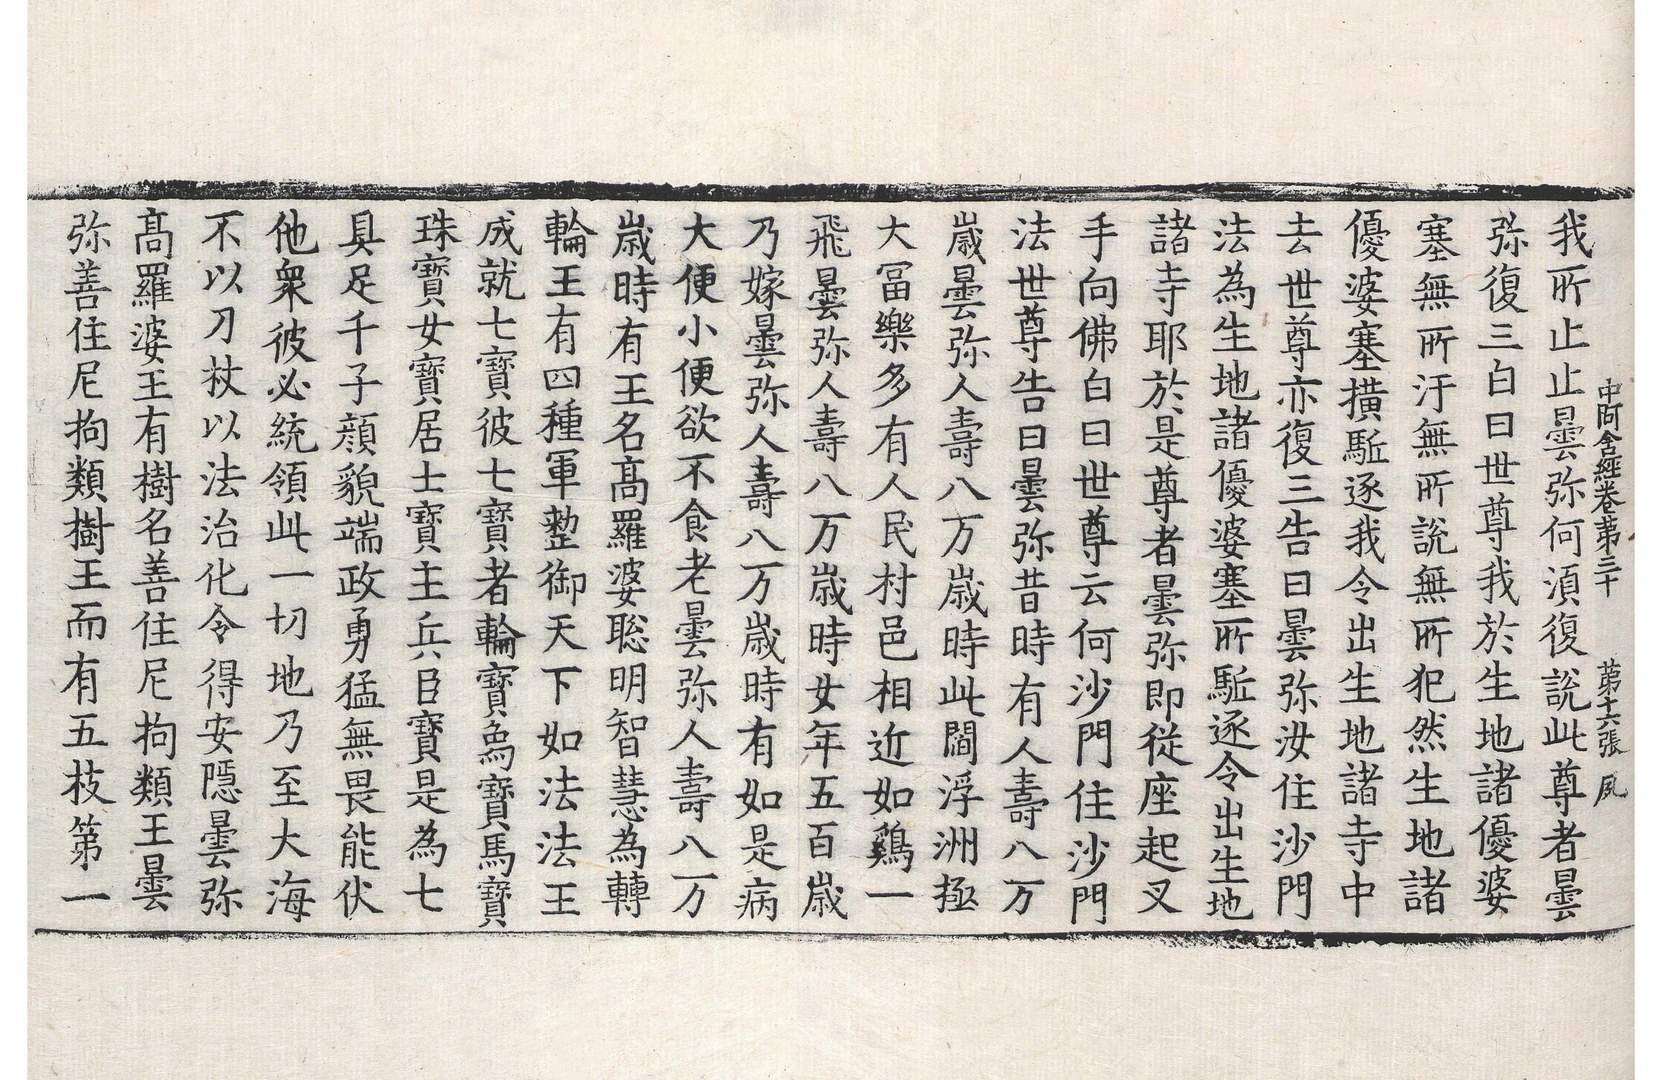 中阿含經卷第三十　第十六張　風
我所止止曇弥何須復說此尊者曇
弥復三白曰世尊我於生地諸優婆
塞無所汙無所說無所犯然生地諸
優婆塞撗駈逐我令出生地諸寺中
去世尊亦復三告曰曇弥汝住沙門
法為生地諸優婆塞所駈逐令出生地
諸寺耶於是尊者曇弥即從座起叉
手向佛白曰世尊云何沙門住沙門
法世尊告曰曇弥昔時有人壽八万
歲曇弥人壽八万歲時此閻浮洲極
大冨樂多有人民村邑相近如鷄一
飛曇弥人壽八万歲時女年五百歲
乃嫁曇弥人壽八万歲時有如是病
大便小便欲不食老曇弥人壽八万
歲時有王名髙羅婆聡明智慧為轉
輪王有四種軍整御天下如法法王
成就七寶彼七寶者輪寶象寶馬寶
珠寶女寶居士寶主兵臣寶是為七
具足千子顔貌端政勇猛無畏能伏
他衆彼必統領此一切地乃至大海
不以刀杖以法治化令得安隱曇弥
髙羅婆王有樹名善住尼拘類王曇
弥善住尼拘類樹王而有五枝第一